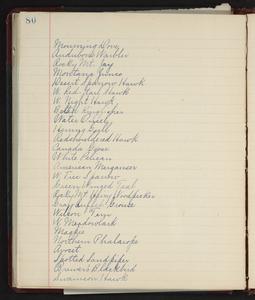 80
Mourning Dove
Audubons Warbler
Rocky Mt. Jay
Montana Junco
Desert Sparrow Hawk
W. Red Tail Hawk
W. Night Hawk
Belted Kingfisher
Water Ouzel
Herring Gull
Redshouldered Hawk
Canada Goose
White Pelican
American Merganser
W. Tree Sparrow
Green Winged Teal
Rocky Mt. Hairy Woodpecker
Gray Ruffed Grouse
Wilson Tern
W. Meadowlark
Magpie
Northern Phalarope
Avocet
Spotted Sandpiper
Brewer's Blackbird
Swainson Hawk